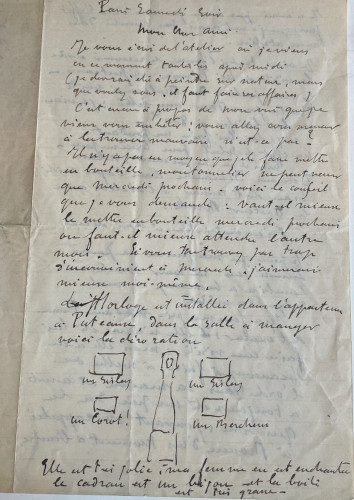 Paris Samedi Soir
Mon cher ami
Je vous écris de l'atelier où je viens
en ce moment tous les après midi
(je devrais être à peindre sur nature, mais
que voulez vous, il faut faire ses affaires)
C'est encore à propos de mon vin que je
viens vous embêter; vous allez vous arriver
à le trouver mauvais n'est-ce pas.
Il n'y a pas eu moyen que je le fasse mettre
en bouteille, mon tonnelier ne peut venir
que mercredi prochain. voici le conseil
que je vous demande: vaut-il mieux
le mettre en bouteille mercredi prochain
ou faut-il mieux attendre l'autre
mois. Si vous trouvez pas trop
d'inconvénient à mercredi, j'aimerais
mieux moi-même.
L'Horloge est installée dans l'appartement
à Puteaux, dans la salle à manger
voici la décoration
un Sisley
un Sisley
un Corot!
un Berchem
Elle est très jolie, ma femme en est enchantée
le cadran est un bijou et la boîte
est très grave.